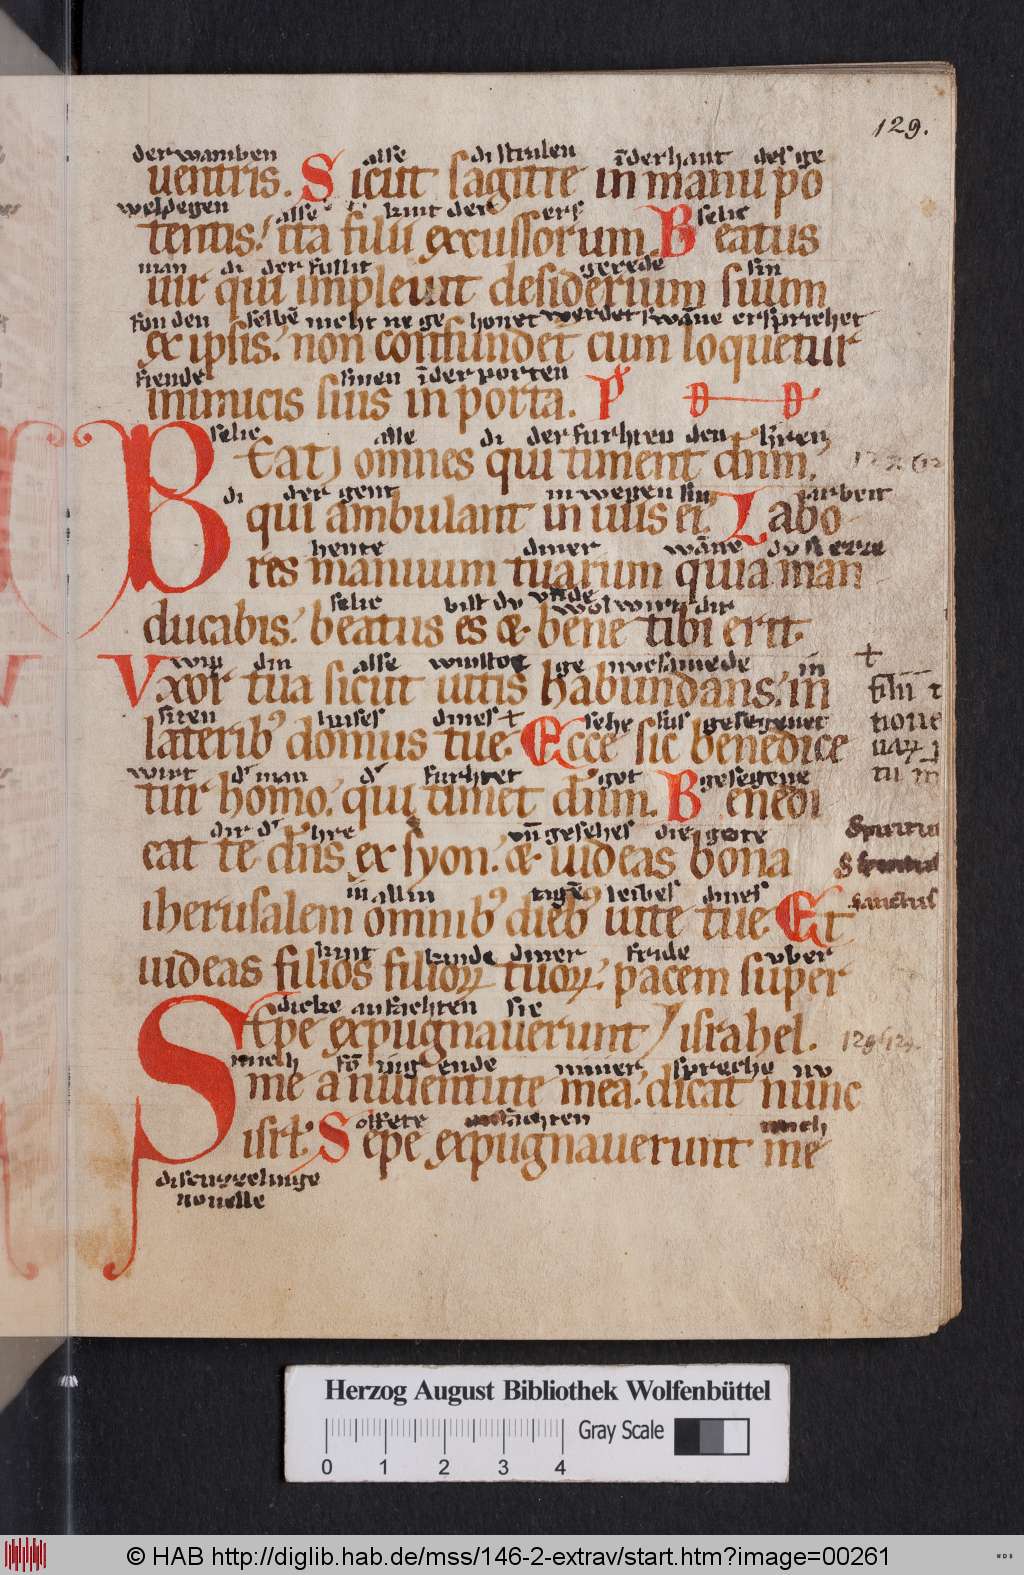 129.
der wamben alse di stralen īder hant des ge
uentris. Sicut sagitte in manu po
weldegen alse kint der ers selic
tentis: ita filii excussorum. Beatus
man di der fullit gerede sin
uir qui impleuit desiderium suum
fon den selbē nieht ne ge honet werdet swāne er sprichet
ex ipsis: non confundet cum loquetur
fiende sinen īder porten
inimicis suis in porta. P
selic alle di der furhten den h̄ren
Beati omnes qui timent dn̄m:
di der gent in wegen sin arbeit
qui ambulant in uiis ei. Labo
hente diner wāne du
res manuum tuarum quia man
selic bist du vnde wol wirt dir
ducabis: beatus es & bene tibi erit.
wip din alse winstoc ge in
Vxor tua sicut uitis habundans: in
siten huses dines +
laterib' domus tue. Ecce sic benedice
sehe sus gesegenet
wirt d' man d' furhtet got gesegene
tur homo: qui timet dn̄m. Benedi
dir d' h̄re vn̄ gesehes die gote
cat te dn̄s ex syon: & uideas bona
in allin tagē leibes dines
iherusalem omnib' dieb' uite tue. Et
kint kinde diner fride vber
uideas filios filioꝝ tuoꝝ: pacem super
dicke anfæhten sie
Sepe expugnauerunt / israhel.
mich fō iugende miner spreche nv
me a iuuentute mea: dicat nunc
offete mich
isrł: Sepe expugnauerunt me
nouelle
+
filii
tione
tu
Spiritus
sanctus
Herzog August Bibliothek Wolfenbüttel
Gray Scale
0 1 2 3 4
© HAB http://diglib.hab.de/mss/146-2-extrav/start.htm?image=00261